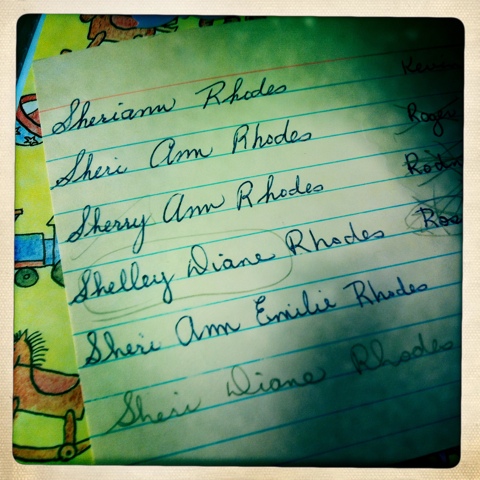 Sheriann Rhodes
Sheri Ann Rhodes
Sherry Ann Rhodes
Shelley Diane Rhodes
Sheri Ann Emilie Rhodes
Sheri Diane Rhodes